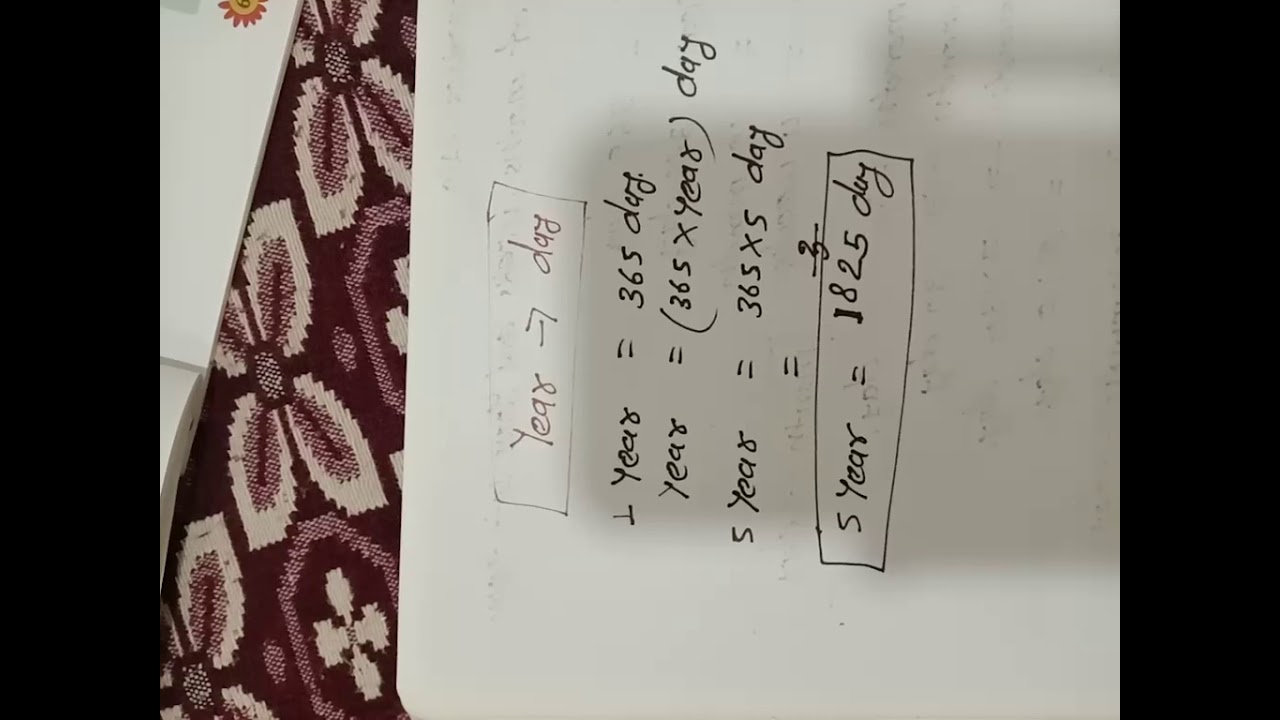 Year → day
1 Year = 365 day
Year = (365 × Year) day
5 Year = 365×5 day
=
5 Year = 1825 day